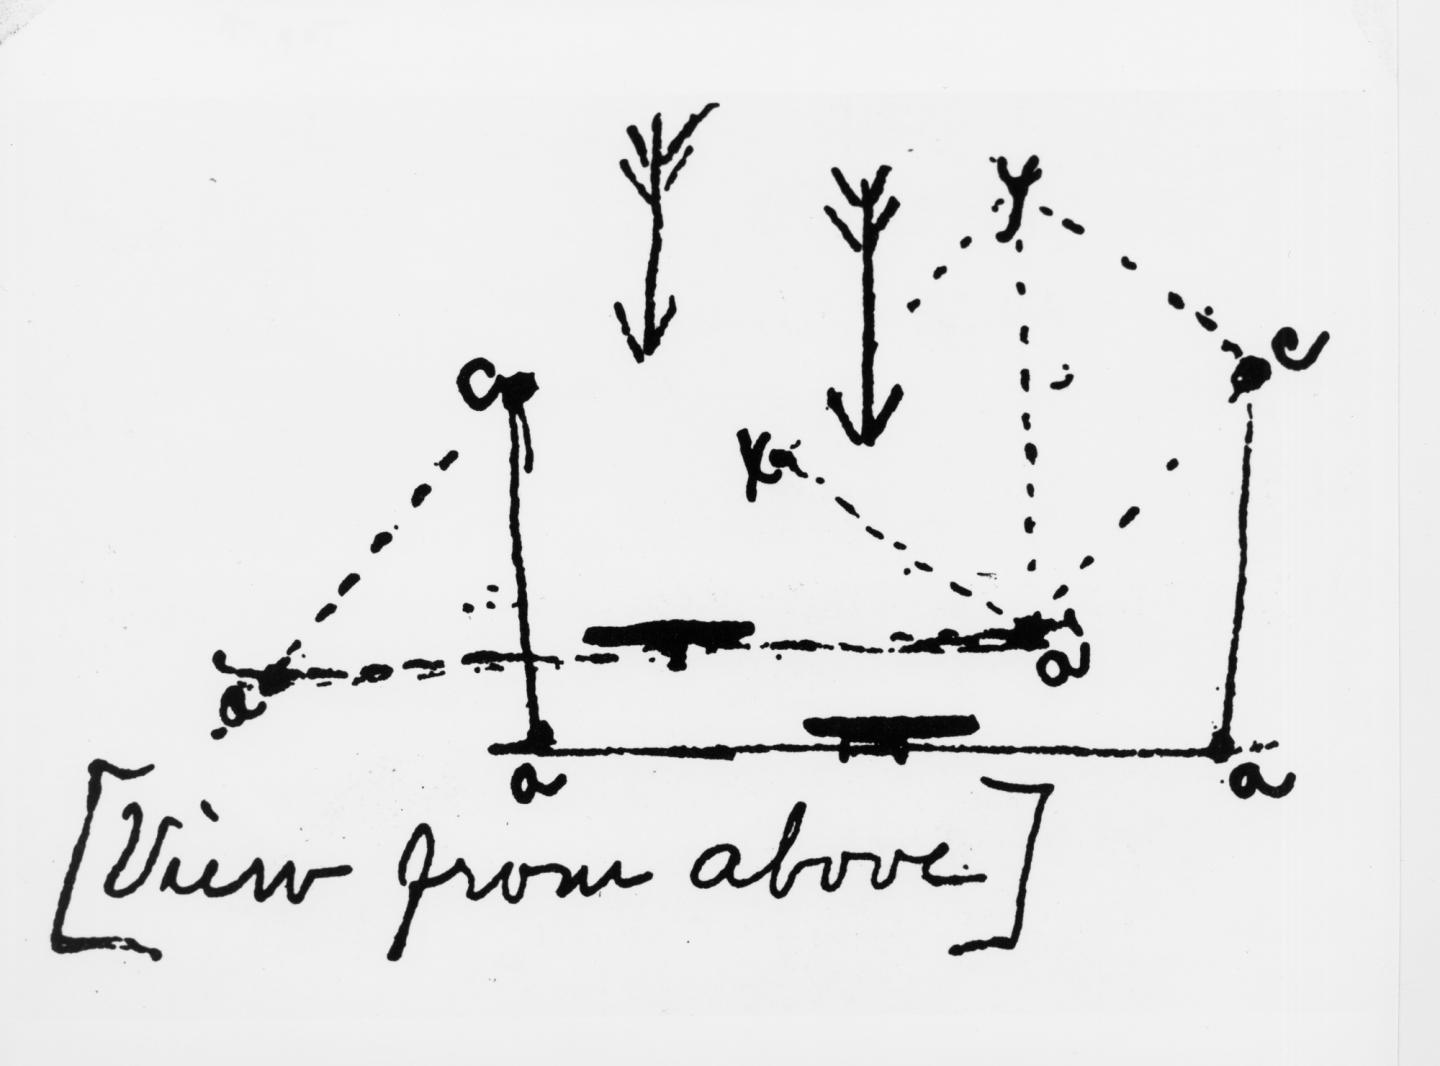 y
c
e
x
a
a
a
a
[View from above]